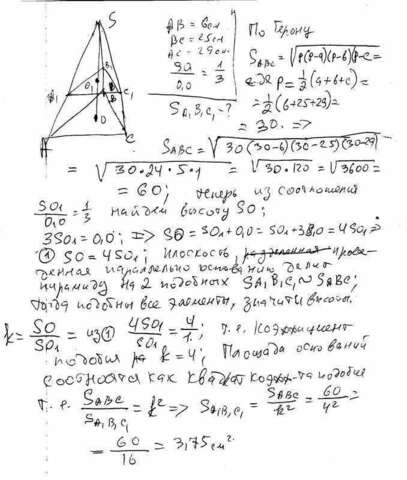 S
AB = 6см
BC = 25см
AC = 29см
SO₁/O₁O = 1/3
S A₁B₁C₁ - ?
По Герону
S ABC = √p(p-a)(p-b)(p-c) =
где p = 1/2(a+b+c) =
= 1/2(6+25+29) =
= 30. =>
B₁ C₁
O₁
O
C
S ABC = √30(30-6)(30-25)(30-29)
= √30·24·5·1 = √30·120 = √3600 =
= 60; теперь из соотношения
SO₁/O₁O = 1/3 найдем высоту SO;
3SO₁ = O₁O; => SO = SO₁ + O₁O = SO₁ + 3SO₁ = 4SO₁ =>
① SO = 4SO₁; плоскость, прове-
денная параллельно основанию делит
пирамиду на 2 подобных SA₁B₁C₁ ~ SABC;
тогда подобны все элементы, значит и высоты.
k = SO/SO₁ = из ① 4SO₁/SO₁ = 4/1; т.е. коэффициент
подобия k = 4; Площади оснований
соотносятся как квадрат коэф-та подобия
т.е. S ABC/S A₁B₁C₁ = k² => S A₁B₁C₁ = S ABC/k² = 60/4² =
= 60/16 = 3,75 см²